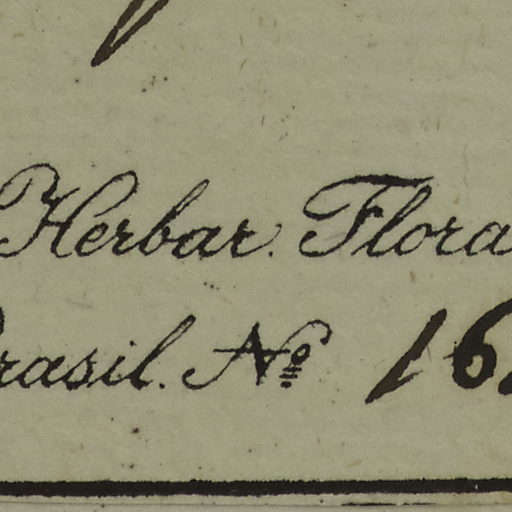 Herbar. Flora
rasil. Nº 16